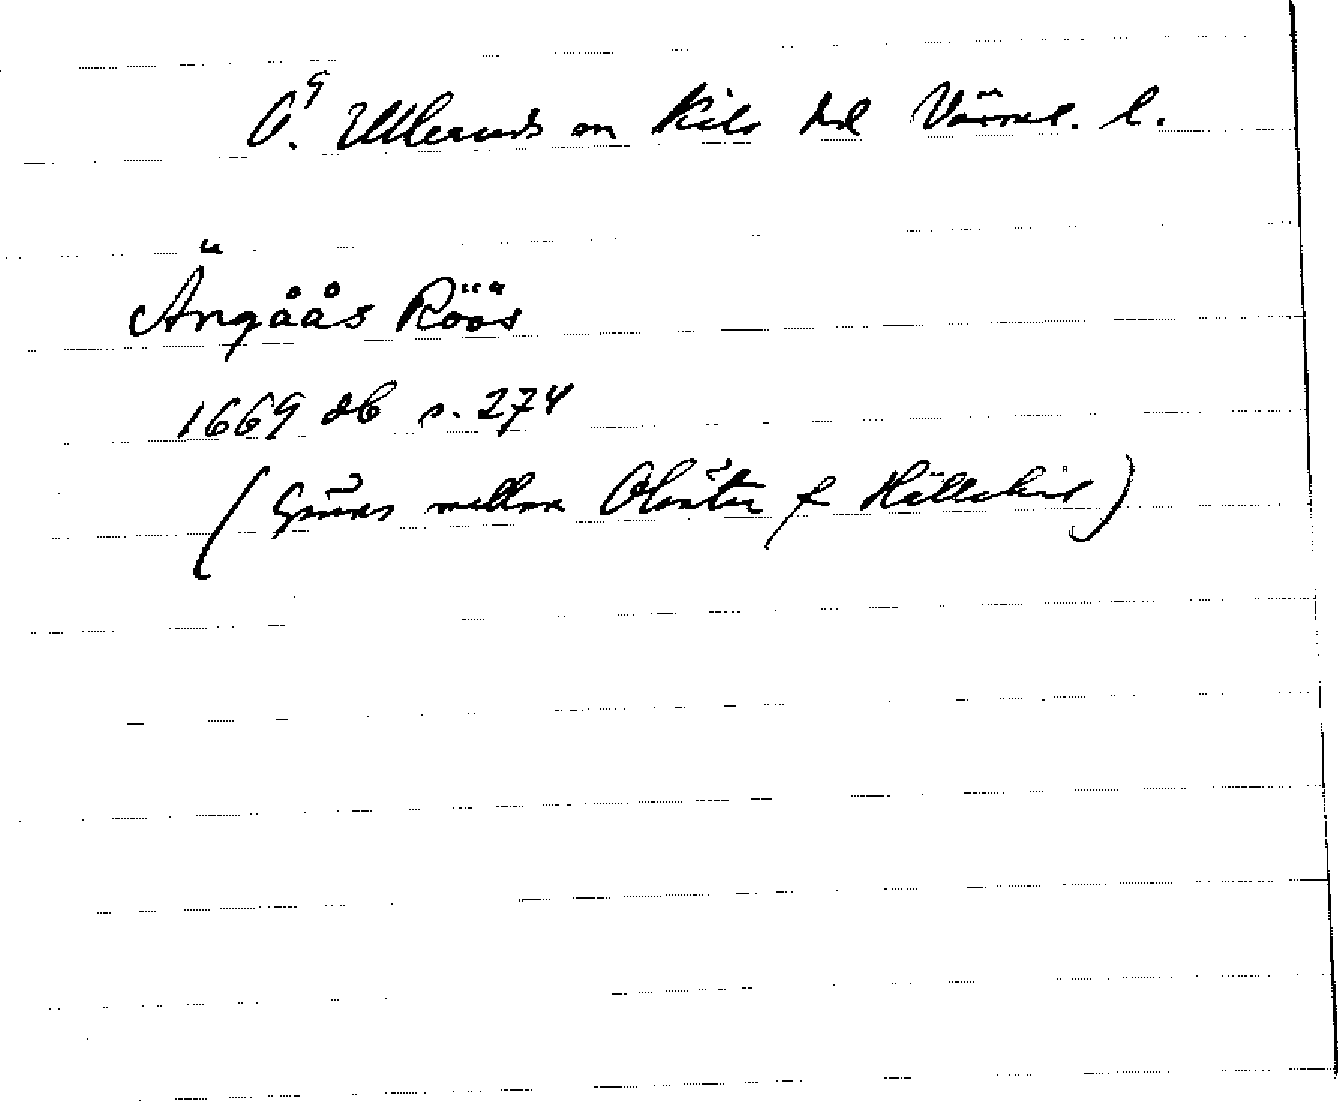 Ö. Ullerud sn Kils hd Värml. l.
Ängåås Röös
1669 db s. 274
(Gräns mellan Olsäter & Hällekil)